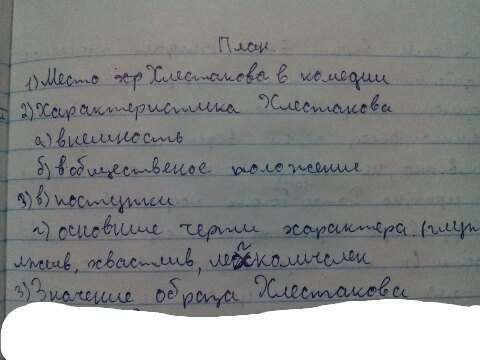 План
1) Место Хлестакова в комедии
2) Характеристика Хлестакова
а) внешность
б) в общественое положение
в) поступки
г) основные черты характера (глуп
лжив, хвастлив,
3) Значение образа Хлестакова